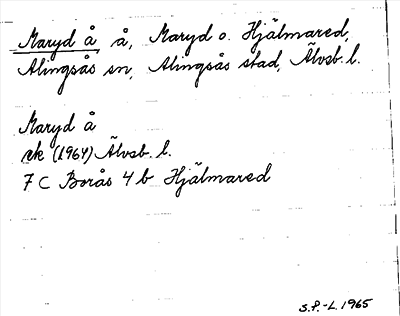 Maryd å, å, Maryd o. Hjälmared,
Alingsås sn, Alingsås stad, Älvsb. l.
Maryd å
ek (1964) Älvsb. l.
7 C Borås 4 b Hjälmared
S.P.-L. 1965